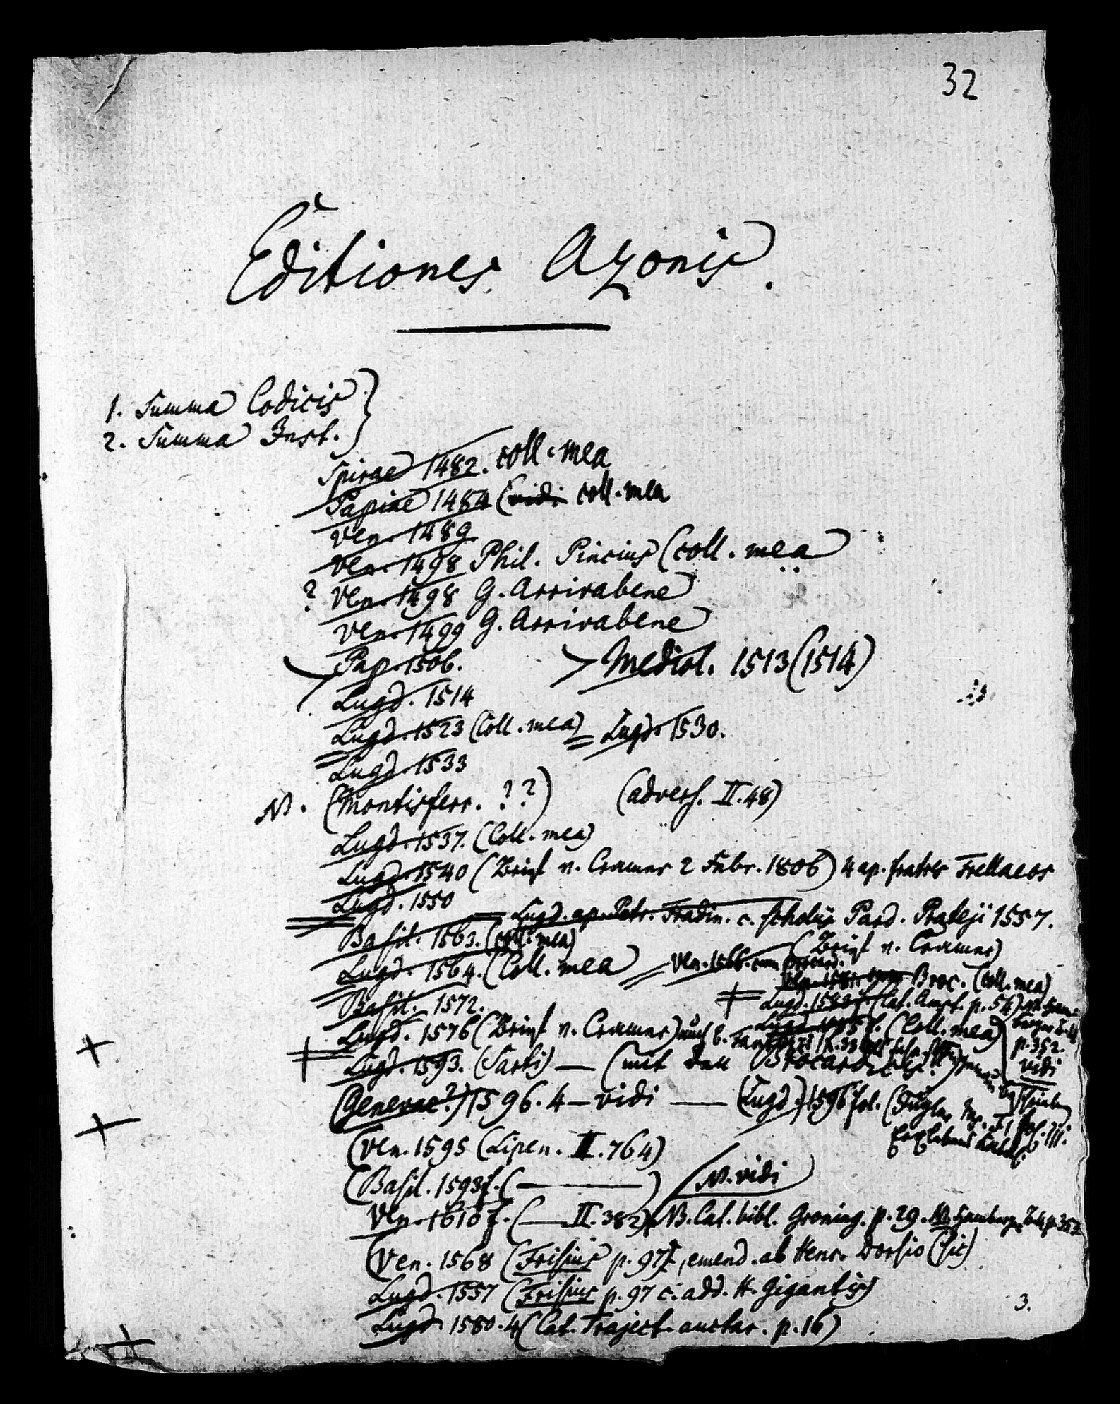 32
Editiones Azonis.
1. Summa Codicis }
2. Summa Inst.
Spirae 1482. coll. mea
Papiae 1484 (vidi coll. mea
Ven. 1489
Ven. 1498 Phil. Pincius (coll. mea
? Ven. 1498 G. Arrivabene
Ven. 1499 G. Arrivabene
Pap. 1506. > Mediol. 1513 (1514)
Lugd. 1514
Lugd. 1523 (Coll. mea) = Lugd. 1530.
Lugd. 1533
N. (Montisferr. ??) (advers. II. 48)
Lugd. 1537. (Coll. mea)
Lugd. 1540 (Brief v. Cramer 2 Febr. 1806) 4 ap. fratres Frellaeos
Lugd. 1550
Lugd. ap. Petr. Fradin. c. scholiis Pard. Prateji 1557.
Basil. 1563. (coll. mea) (Brief v. Cramer)
Lugd. 1564. (Coll. mea) Ven. 1566
Ven. 1581 cum Broc. (coll. mea)
Basil. 1572.
Lugd. 1576 (Brief v. Cramer)
(Coll. mea)
p. 352.
vidi
Lugd. 1593. (Sarti) — (mit den Brocardicis
(Genevae?) 1596. 4 — vidi — (Lugd.) 1596 fol.
(Ven. 1595 (Lipen. II. 764)
(Basil. 1593 f. (———) N. vidi
Ven. 1610 f. (— II. 382) N. Cat. bibl. Groning. p. 29.
(Ven. 1568 (Frisius p. 97), emend. ab Henr. Dorsio (sic)
Lugd. 1557 (Frisius p. 97 c. add. H. Gigantis)
Lugd. 1580. 4 (Cat. Traject. auctar. p. 16)
3.